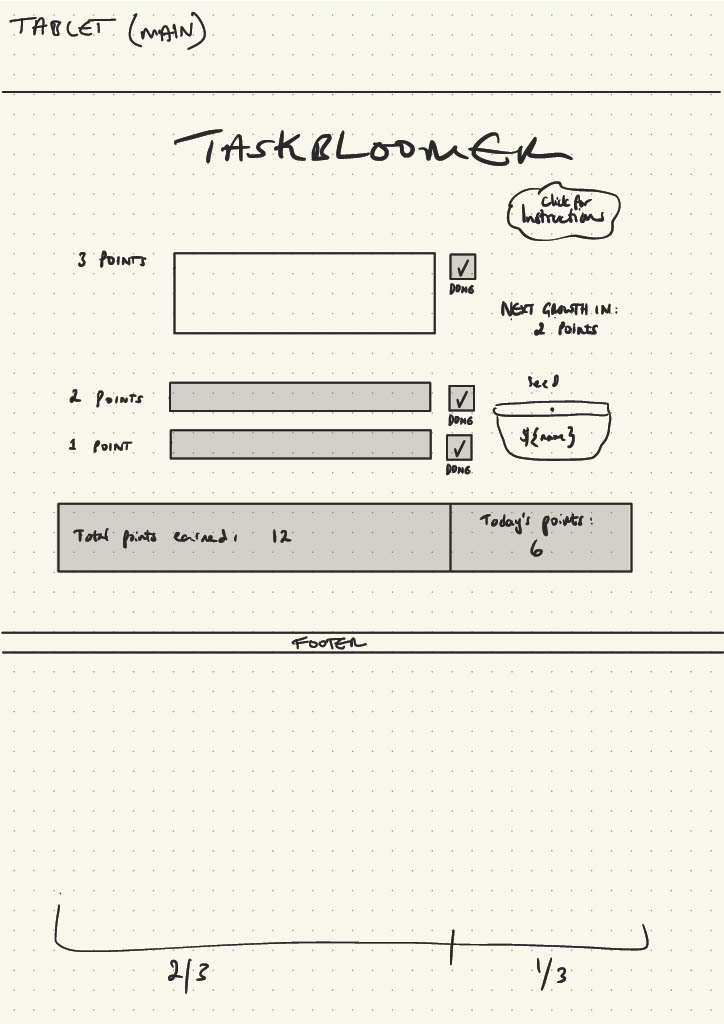 TABLET (MAIN)
TASKBLOOMER
Click for
Instructions
3 POINTS
DONE
NEXT GROWTH IN:
2 POINTS
Seed
2 POINTS
DONE
${name}
1 POINT
DONE
Total points earned: 12
Today's points:
6
FOOTER
2/3
1/3